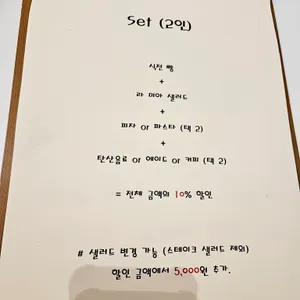 Set (2인)
식전 빵
+
라 미아 샐러드
+
피자 or 파스타 (택 2)
+
탄산음료 or 에이드 or 커피 (택 2)
= 전체 금액의 10% 할인
# 샐러드 변경 가능 (스테이크 샐러드 제외)
할인 금액에서 5,000원 추가.